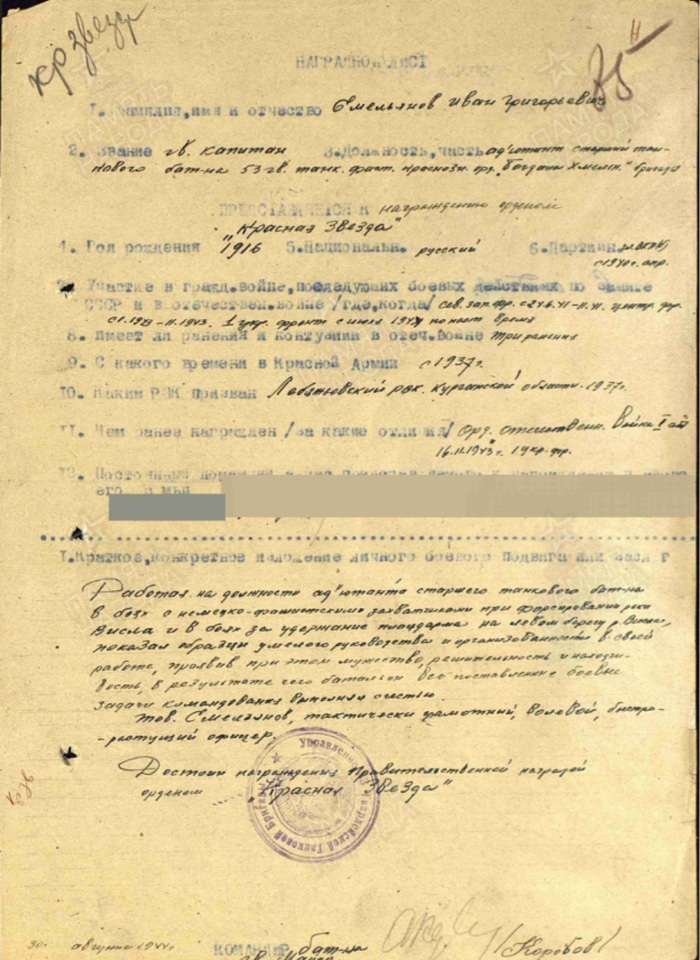 кр звезд
НАГРАДНОЙ ЛИСТ
1. Фамилия, имя и отчество Емельянов Иван Григорьевич
2. Звание гв. капитан 3. Должность, часть ад'ютант старший тан-
кового бат-на 53 гв. танк. фаст. краснозн. орд. "Богдана Хмельн." бригады
ПРЕДСТАВЛЯЕТСЯ К награждению орденом
"Красная Звезда"
4. Год рождения 1916 5. Национальн. русский 6. Партийн.
с 1940 г. апр.
7. Участие в гражд.войне, последующих боевых действиях по защите
СССР и в отечествен.войне /где, когда/ Сев. зап. фр. центр. фр.
1 укр. фронт с июля 1944 по наст время
8. Имеет ли ранения и контузии в отеч.войне три ранения
9. С какого времени в Красной Армии с 1937 г.
10. Каким РВК призван рвк. Курганской области. 1937 г.
11. Чем ранее награжден /за какие отличия/ Орд. отечествен. Война I ст
16.11.1943 г. 1 укр. фр.
12. Постоянный домашний
его
I. Краткое, конкретное изложение личного боевого подвига или засл г
Работая на должности ад'ютанта старшего танкового бат-на
в боях с немецко-фашистскими захватчиками при форсировании реки
Висла и в боях за удержание плацдарма на левом берегу р. Висла,
показал образцы умелого руководства и организованности в своей
работе, проявив при этом мужество, решительность и находчи-
вость, в результате чего батальон все поставленные боевые
задачи командования выполнял с честью.
Тов. Емельянов, тактически грамотный, волевой, быстро-
-реагующий офицер.
Достоин награждения Правительственной наградой
орденом "Красная Звезда"
Управление Танковой Бригады
30. августа 1944 г КОМАНДИР бат-на
/Коробов/